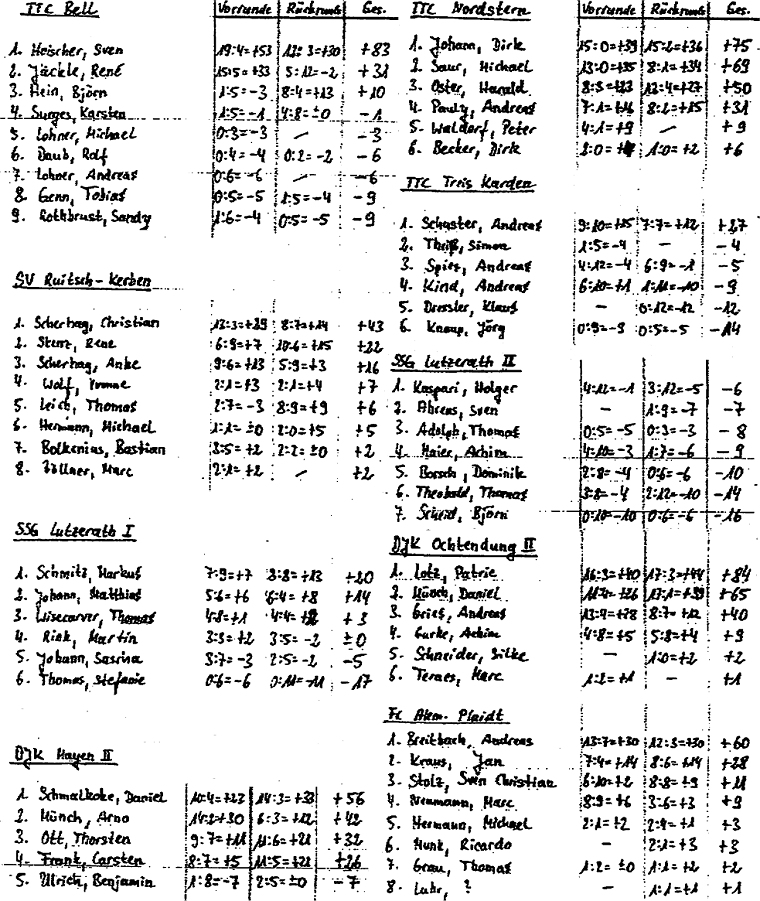 TTC Bell Vorrunde Rückrunde Ges.
1. Heischer, Sven 19:4=+53 13:3=+30 +83
2. Jäckle, René 15:5=+33 5:12=-2 +31
3. Hein, Björn 1:5=-3 8:4=+13 +10
4. Surges, Karsten 1:5=-1 4:8=±0 -1
5. Lohner, Michael 0:3=-3 — -3
6. Daub, Rolf 0:4=-4 0:2=-2 -6
7. Lohner, Andreas 0:6=-6 — -6
8. Genn, Tobias 0:5=-5 1:5=-4 -9
9. Rothbrust, Sandy 1:6=-4 0:5=-5 -9
SV Ruitsch-Kerben
1. Scherhag, Christian 12:3=+29 8:7=+14 +43
2. Sterz, Rene 6:9=+7 10:6=+15 +22
3. Scherhag, Anke 9:6=+13 5:9=+3 +16
4. Wolf, Yvonne 2:1=+3 2:1=+4 +7
5. Leich, Thomas 2:7=-3 8:9=+9 +6
6. Hermann, Michael 1:1=±0 2:0=+5 +5
7. Bolkenius, Bastian 3:5=+2 2:2=±0 +2
8. Zöllner, Marc 2:1=+2 — +2
SSG Lutzerath I
1. Schmitz, Markus 7:9=+7 3:8=+13 +20
2. Johann, Matthias 5:6=+6 6:4=+8 +14
3. Lisecarver, Thomas 4:8=+1 4:4=+2 +3
4. Riek, Martin 3:3=+2 3:5=-2 ±0
5. Johann, Sasrina 3:7=-3 2:5=-2 -5
6. Thomas, Stefanie 0:6=-6 0:11=-11 -17
DJK Mayen II
1. Schmalkoke, Daniel 10:4=+23 14:3=+33 +56
2. Münch, Arno 14:2+30 6:3=+12 +42
3. Ott, Thorsten 9:7=+11 11:6=+21 +32
4. Frank, Carsten 8:7=+5 11:5=+21 +26
5. Ulrich, Benjamin 1:8=-7 2:5=±0 -7
TTC Nordstern Vorrunde Rückrunde Ges.
1. Johann, Dirk 15:0=+39 15:2=+36 +75
2. Saur, Michael 13:0=+35 8:1=+34 +69
3. Oster, Harald 8:3=+23 12:4=+27 +50
4. Pauly, Andreas 7:1=+16 8:2=+15 +31
5. Waldorf, Peter 4:1=+9 — +9
6. Becker, Dirk 2:0=+4 1:0=+2 +6
TTC Treis Karden
1. Schuster, Andreas 9:10=+15 7:7=+12 +27
2. Theiß, Simon 1:5=-4 — -4
3. Spier, Andreas 4:12=-4 6:9=-1 -5
4. Kind, Andreas 6:10=+1 1:11=-10 -9
5. Dressler, Klaus — 0:12=-12 -12
6. Knaup, Jörg 0:9=-9 0:5=-5 -14
SSG Lutzerath II
1. Kaspari, Holger 4:12=-1 3:12=-5 -6
2. Ahrens, Sven — 1:9=-7 -7
3. Adolph, Thomas 0:5=-5 0:3=-3 -8
4. Maier, Achim 4:10=-3 1:7=-6 -9
5. Borsch, Dominik 2:8=-4 0:6=-6 -10
6. Theobald, Thomas 3:8=-4 2:12=-10 -14
7. Scheid, Björn 0:10=-10 0:6=-6 -16
DJK Ochtendung II
1. Lotz, Patric 16:3=+40 17:3=+44 +84
2. Münch, Daniel 11:4=+26 13:1=+39 +65
3. Gries, Andreas 13:4=+28 8:7=+12 +40
4. Gurke, Achim 4:8=+5 5:8=+4 +9
5. Schneider, Silke — 1:0=+2 +2
6. Ternes, Marc 1:2=+1 — +1
Fc Alem. Plaidt
1. Breitbach, Andreas 13:7=+30 12:3=+30 +60
2. Kraus, Jan 7:4=+14 8:6=+14 +28
3. Stolz, Sven Christian 6:10=+2 8:8=+9 +11
4. Neumann, Marc 8:9=+6 3:6=+3 +9
5. Hermann, Michael 2:1=+2 2:4=+1 +3
6. Munk, Ricardo — 2:1=+3 +3
7. Grau, Thomas 1:2=±0 1:1=+2 +2
8. Luhr, ? — 1:1=+1 +1